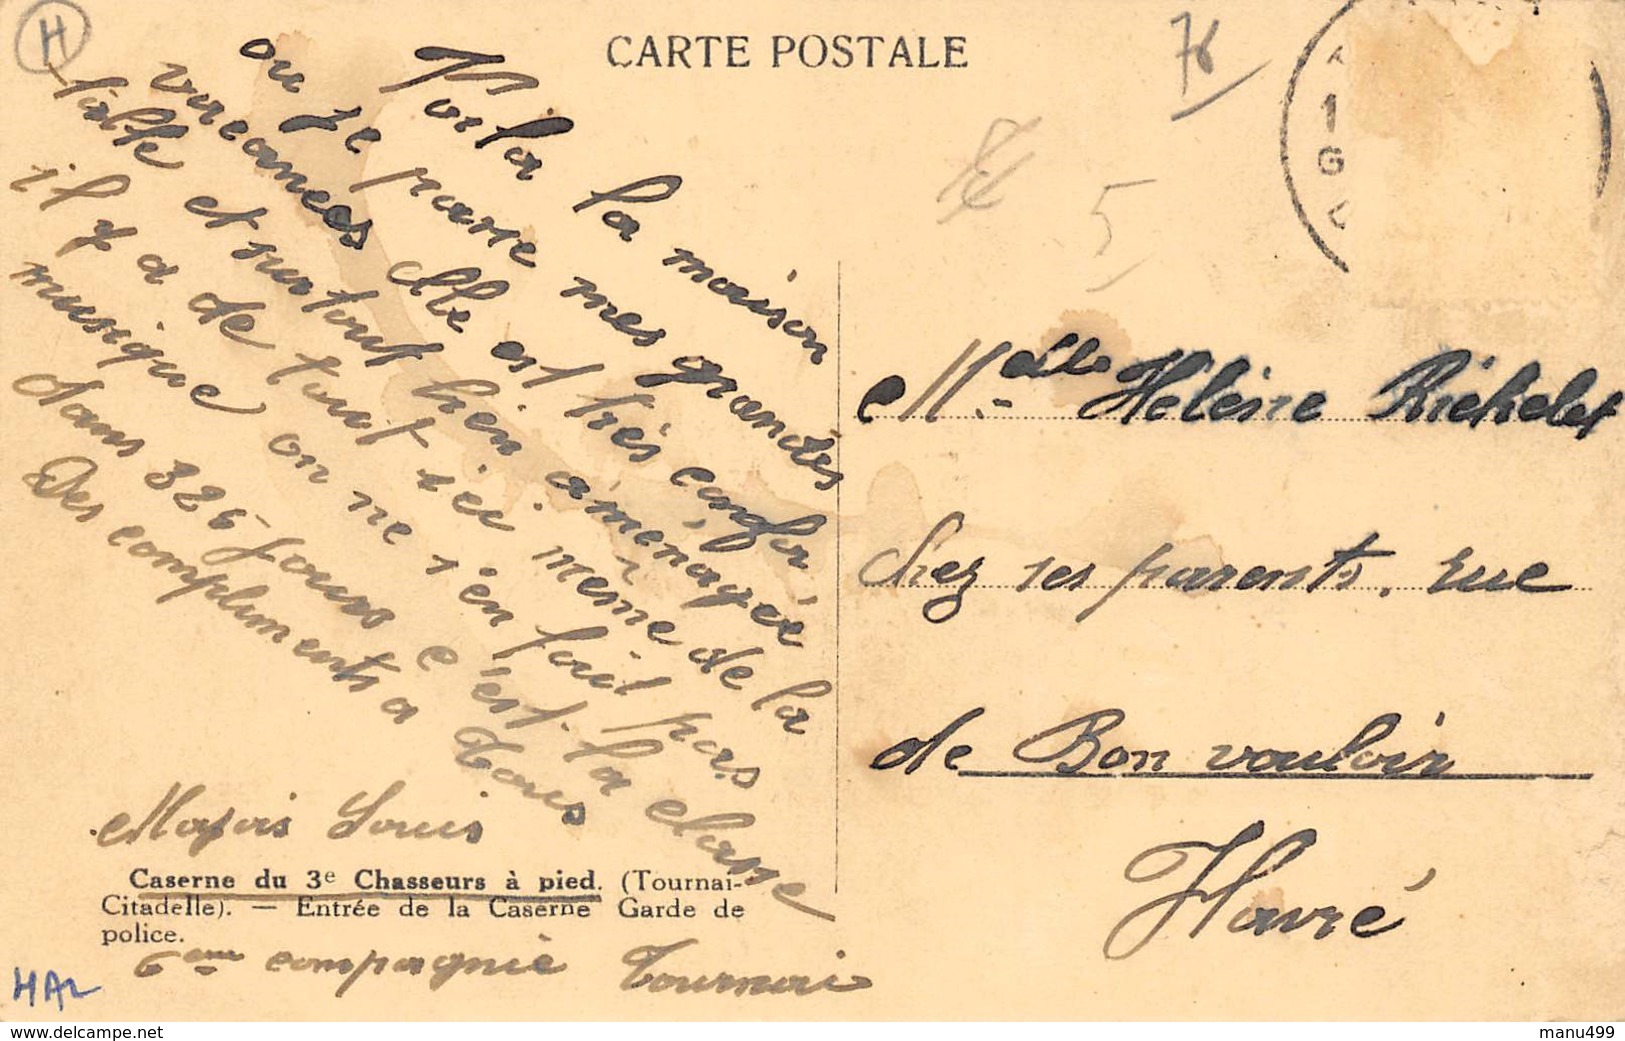 H
CARTE POSTALE
76
5
1
G
Voila la maison
ou je passe mes grandes
vaccances elle est très confor
table et surtout bien aménagée
il y a de tout ici même de la
musique on ne s'en fait pas
dans 326 jours c'est la classe
Des compliments a tous
Louis
Caserne du 3e Chasseurs à pied. (Tournai-
Citadelle). — Entrée de la Caserne Garde de
police.
6eme compagnie Tournai
HAL
Melle Hélène Richelet
Chez ses parents, rue
de Bon vouloir
Havré
www.delcampe.net
manu499